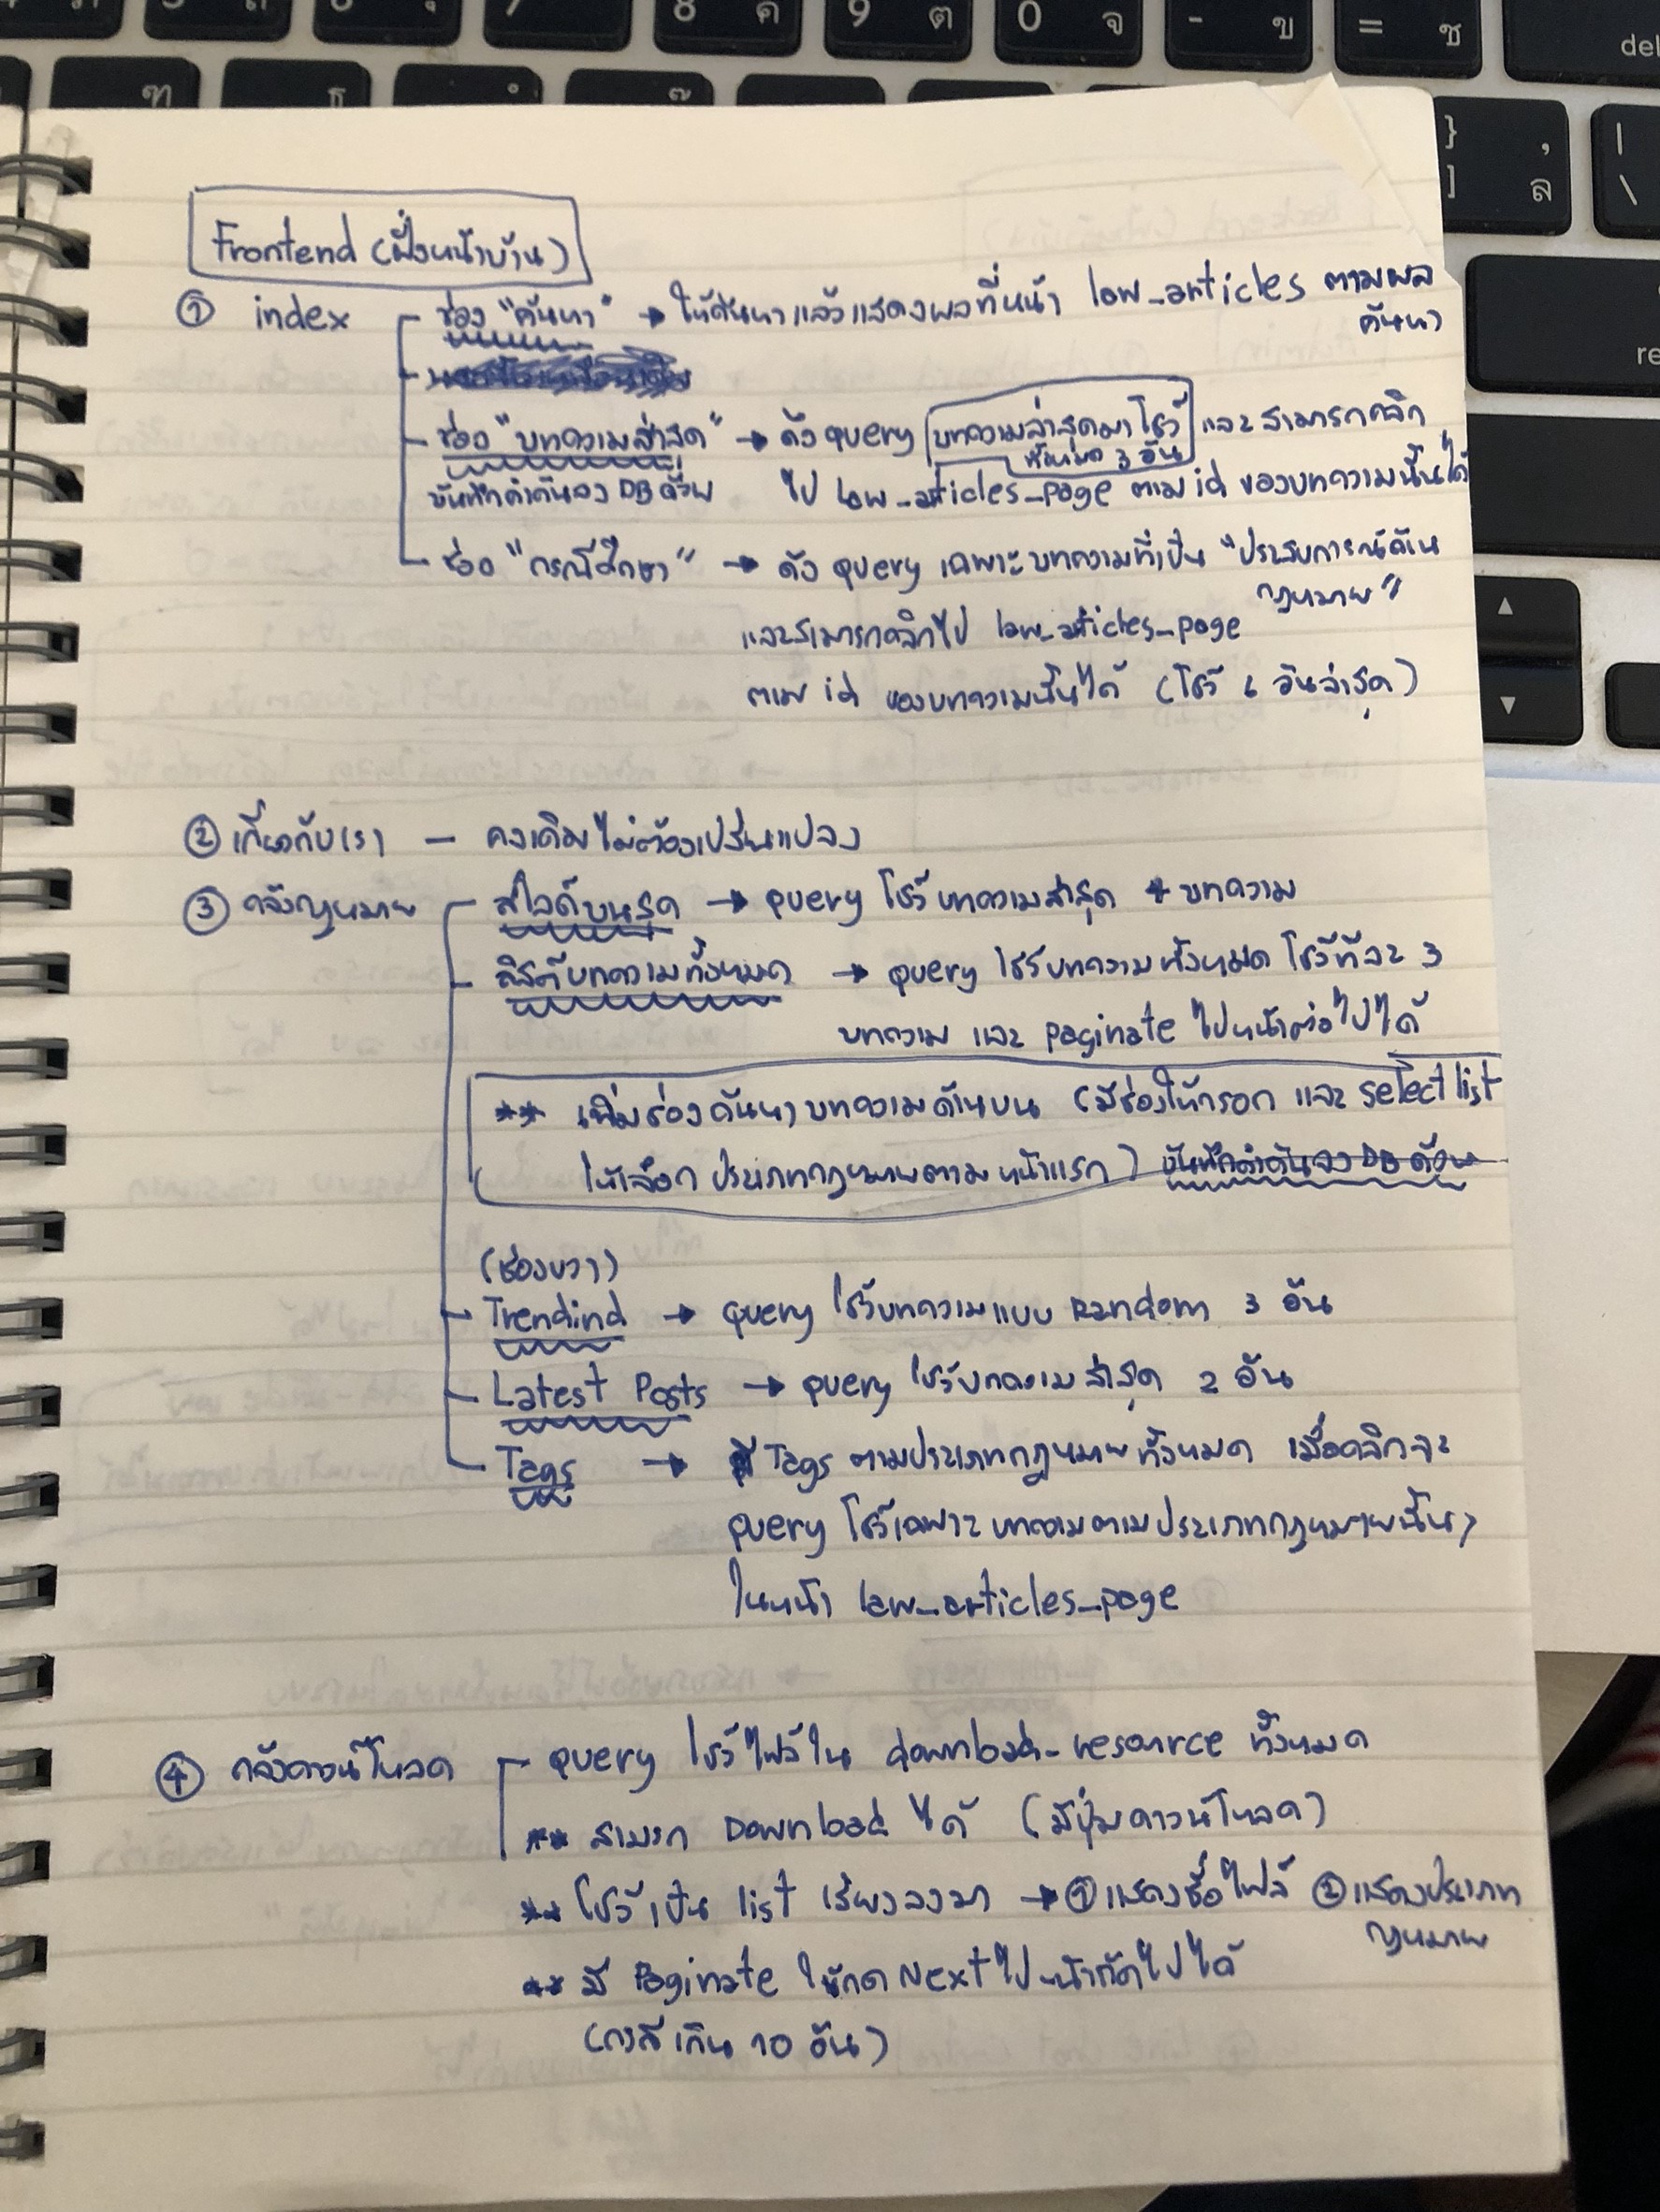 Frontend (ฝั่งหน้าบ้าน)
① index
ช่อง "ค้นหา" → ให้ค้นหาแล้วแสดงผลที่หน้า low_articles ตามผล
ค้นหา
ช่อง "บทความล่าสุด" → ดึง query บทความล่าสุดมาโชว์ และสามารถคลิก
ทั้งหมด 3 อัน
บันทึกคำค้นลง DB ด้วย
ไป low_articles_page ตาม id ของบทความนั้นได้
ช่อง "กรณีศึกษา" → ดึง query เฉพาะบทความที่เป็น "ประสบการณ์ด้าน
กฎหมาย"
และสามารถคลิกไป law_articles_page
ตาม id ของบทความนั้นได้ (โชว์ 6 อันล่าสุด)
② เกี่ยวกับเรา — คงเดิมไม่ต้องเปลี่ยนแปลง
③ คลังกฎหมาย
สไลด์บนสุด → query โชว์บทความล่าสุด 4 บทความ
ลิสต์บทความทั้งหมด → query โชว์บทความทั้งหมด โชว์ทีละ 3
บทความ และ paginate ไปหน้าต่อไปได้
** เพิ่มช่องค้นหาบทความด้านบน (มีช่องให้กรอก และ select list
ให้เลือกประเภทกฎหมายตามหน้าแรก) บันทึกคำค้นลง DB ด้วย
(ช่องขวา)
Trendind → query โชว์บทความแบบ Random 3 อัน
Latest Posts → query โชว์บทความล่าสุด 2 อัน
Tags → มี Tags ตามประเภทกฎหมายทั้งหมด เมื่อคลิกจะ
query โชว์เฉพาะบทความตามประเภทกฎหมายนั้นๆ
ในหน้า law_articles_page
④ คลังดาวน์โหลด
query โชว์ไฟล์ใน download_resource ทั้งหมด
** สามารถ Download ได้ (มีปุ่มดาวน์โหลด)
** โชว์เป็น list เรียงลงมา → ① แสดงชื่อไฟล์ ② แสดงประเภท
กฎหมาย
** มี Paginate ให้กด Next ไปหน้าถัดไปได้
(กรณีเกิน 10 อัน)
8 ค
9 ต
0 จ
- ข
= ช
del
} ,
] ล
|
\
re